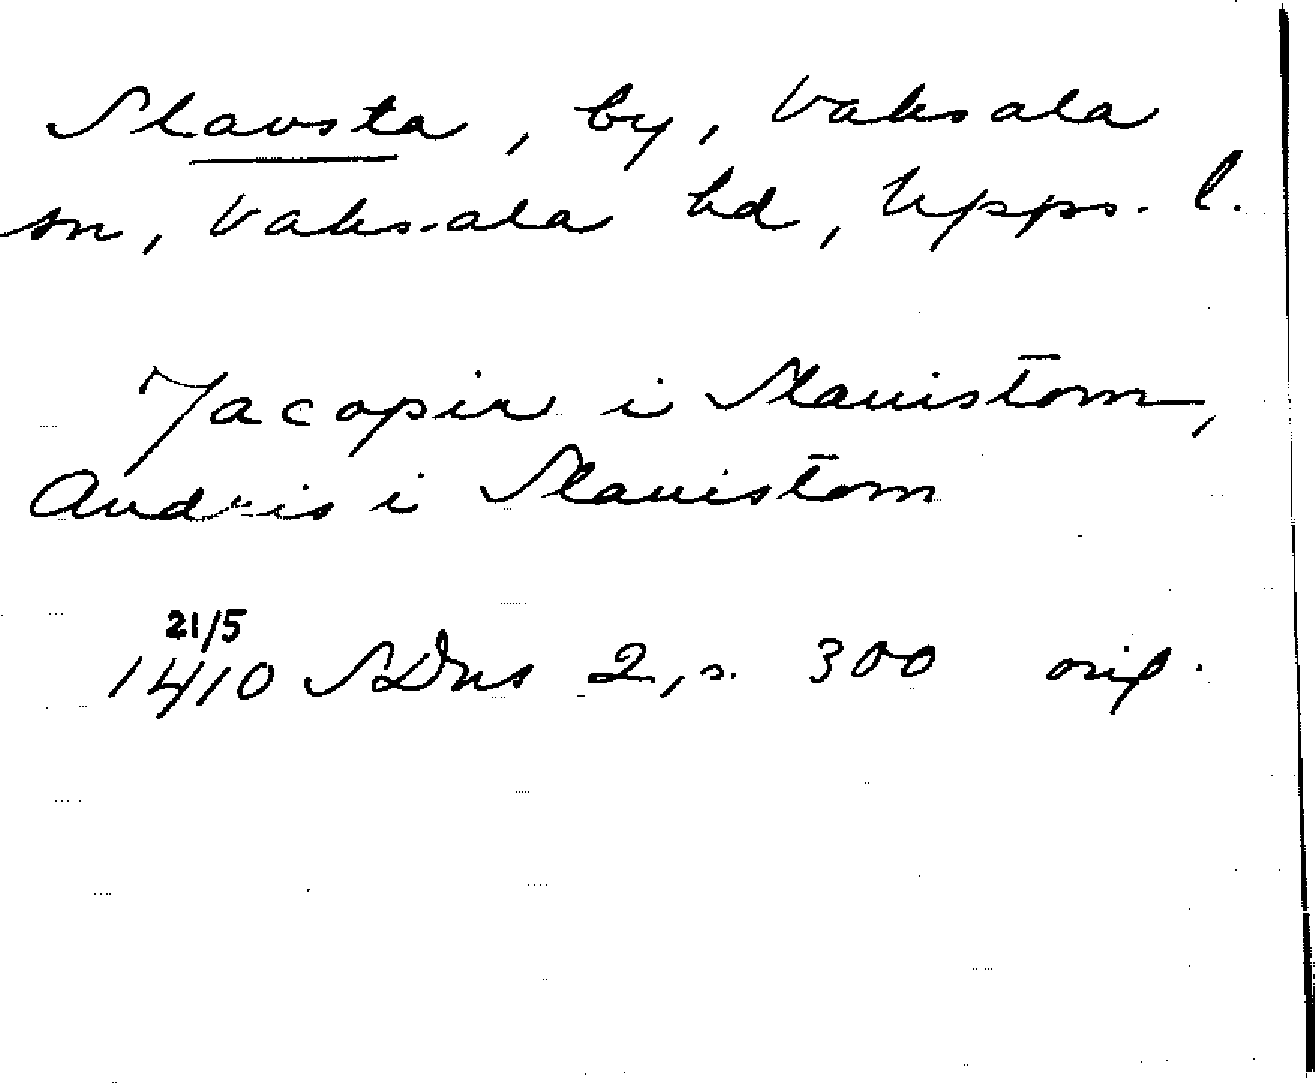 Slavsta, by, Vaksala
sn, Vaksala hd, Upps. l.
Jacopir i Slauistom̄,
Andris i Slauistom̄
21/5
1410 SDns 2, s. 300 orig.